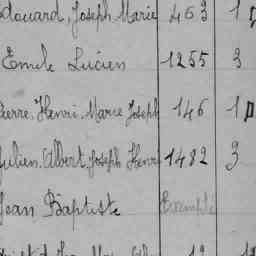 douard, Joseph Marie 463 1
Emile Lucien 1255 3
ierre, Henri, Marie Joseph 146 1
ulien, Albert, Joseph Henri 1482 3
Jean Baptiste Exempté